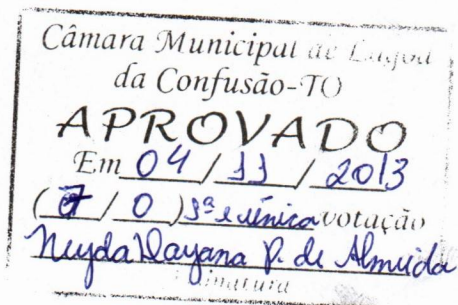 Câmara Municipal de Lagoa
da Confusão-TO
APROVADO
Em 04 / 11 / 2013
( 7 / 0 ) 1ª e única votação
Neyda Dayana P. de Almeida
Assinatura